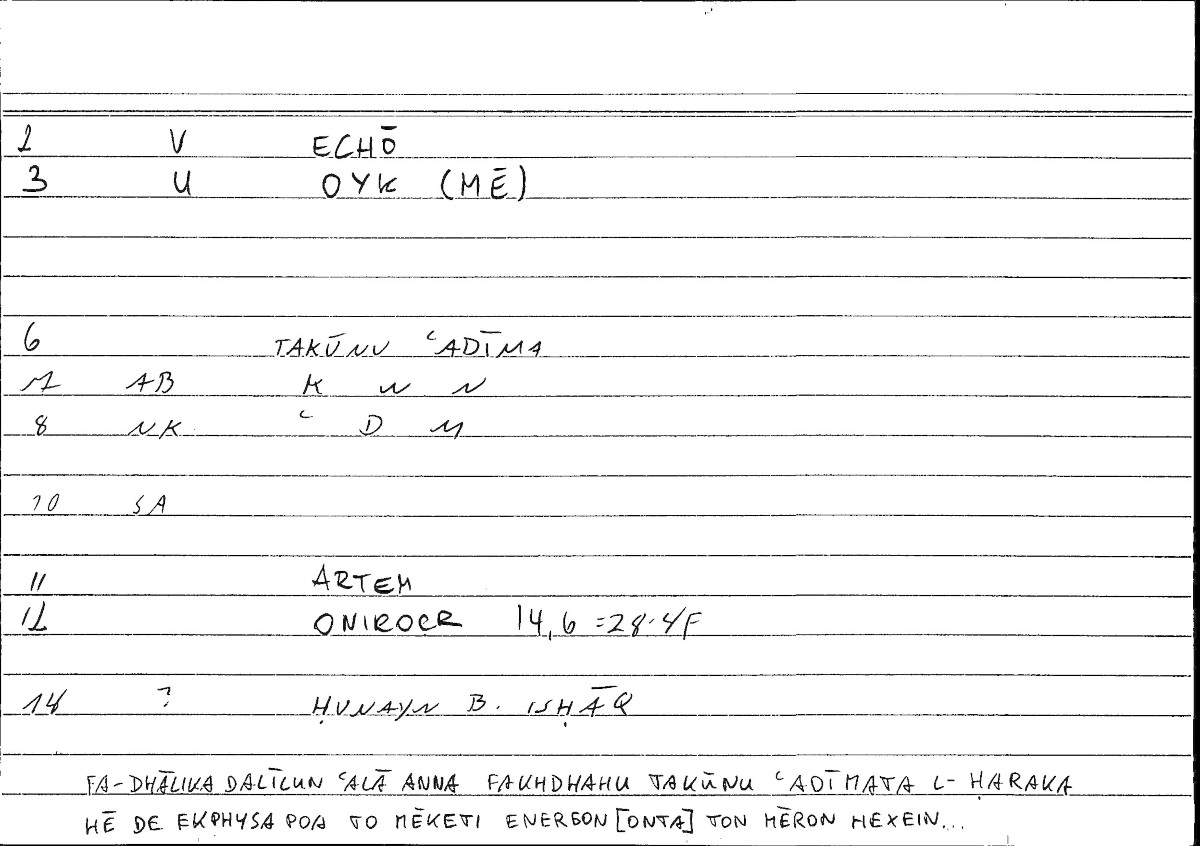 2 V ECHŌ
3 U OYK (MĒ)
6 TAKŪNU ʿADĪMA
7 AB K W N
8 NK ʿ D M
10 SA
11 ARTEM
12 ONIROCR 14,6 =28.4F
14 ? ḤUNAYN B. ISḤĀQ
FA-DHĀLIKA DALĪLUN ʿALĀ ANNA FAKHDHAHU TAKŪNU ʿADĪMATA L-ḤARAKA
HĒ DE EKPHYSA POA TO MĒKETI ENERGON [ONTA] TON MĒRON HEXEIN...